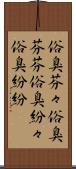 俗臭芬々俗臭
芬芬俗臭紛々
俗臭紛紛